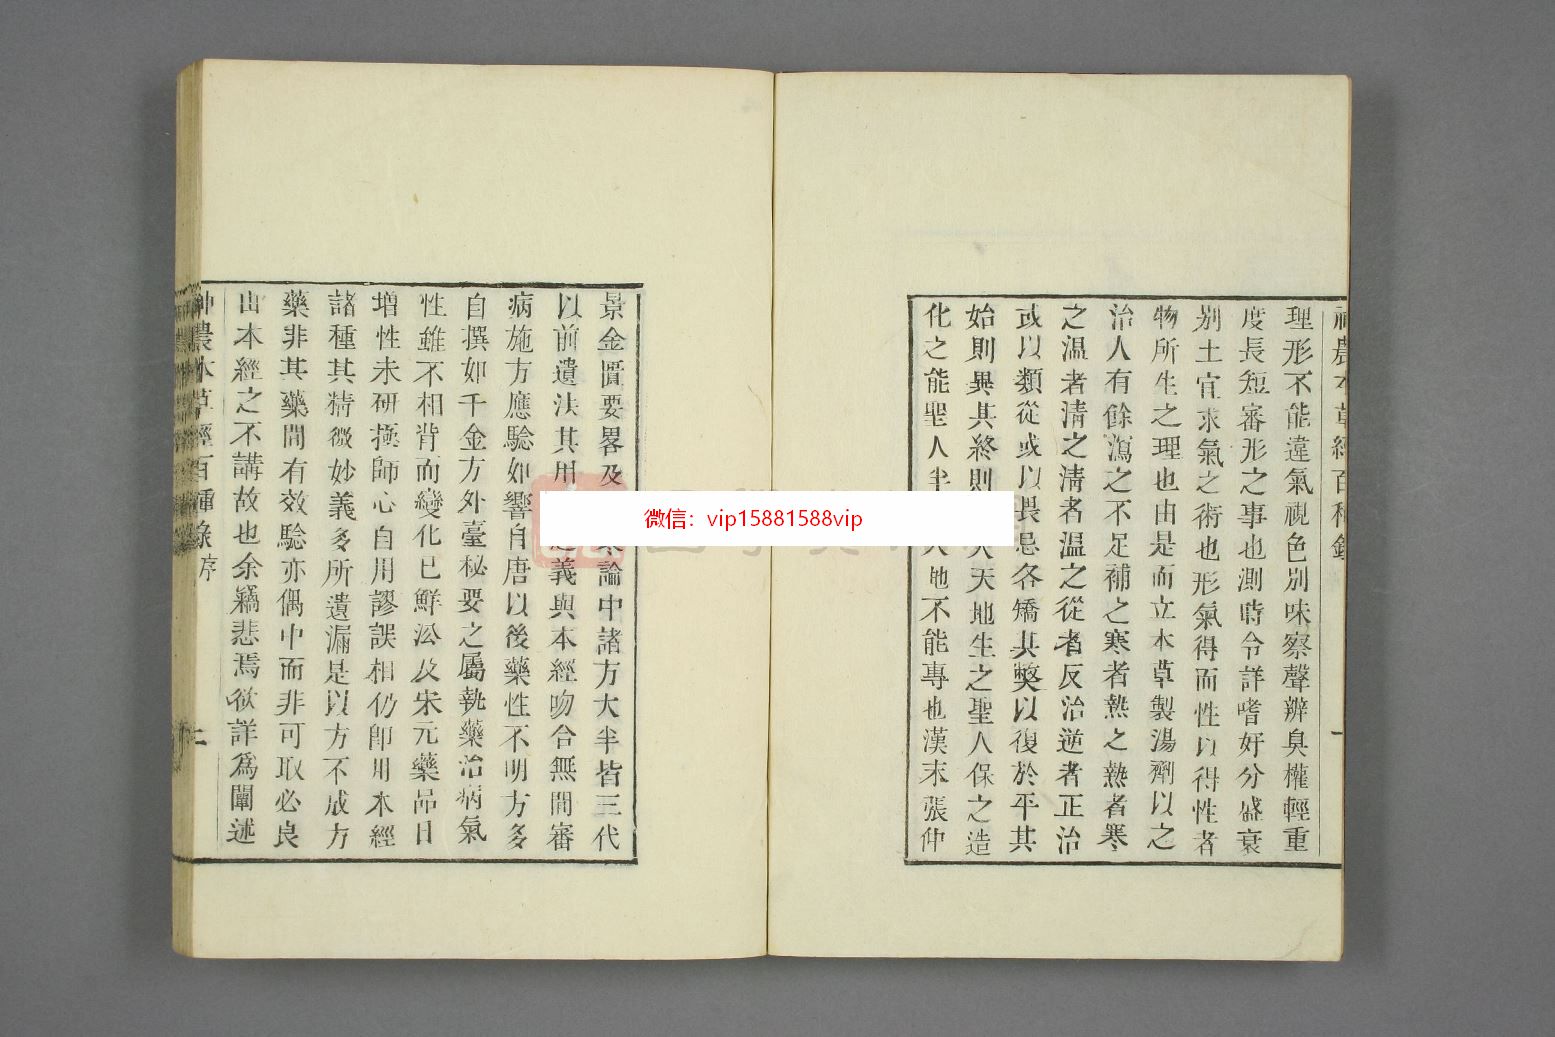 神農本草經百種錄
一
理形不能違氣視色別味察聲辨臭權輕重
度長短審形之事也測時令詳嗜好分盛衰
別土宜求氣之術也形氣得而性以得性者
物所生之理也由是而立本草製湯劑以之
治人有餘瀉之不足補之寒者熱之熱者寒
之温者清之清者温之從者反治逆者正治
或以類從或以畏忌各矯其弊以復於平其
始則異其終則
天天地生之聖人保之造
化之能聖人半
地不能專也漢末張仲
景金匱要畧及
論中諸方大半皆三代
以前遺法其用
義與本經吻合無間審
病施方應驗如響自唐以後藥性不明方多
自撰如千金方外臺秘要之屬執藥治病氣
性雖不相背而變化已鮮沿及宋元藥品日
增性未研極師心自用謬誤相仍即用本經
諸種其精微妙義多所遺漏是以方不成方
藥非其藥間有效驗亦偶中而非可取必良
由本經之不講故也余竊悲焉欲詳爲闡述
神農本草經百種錄序
二
微信：vip15881588vip